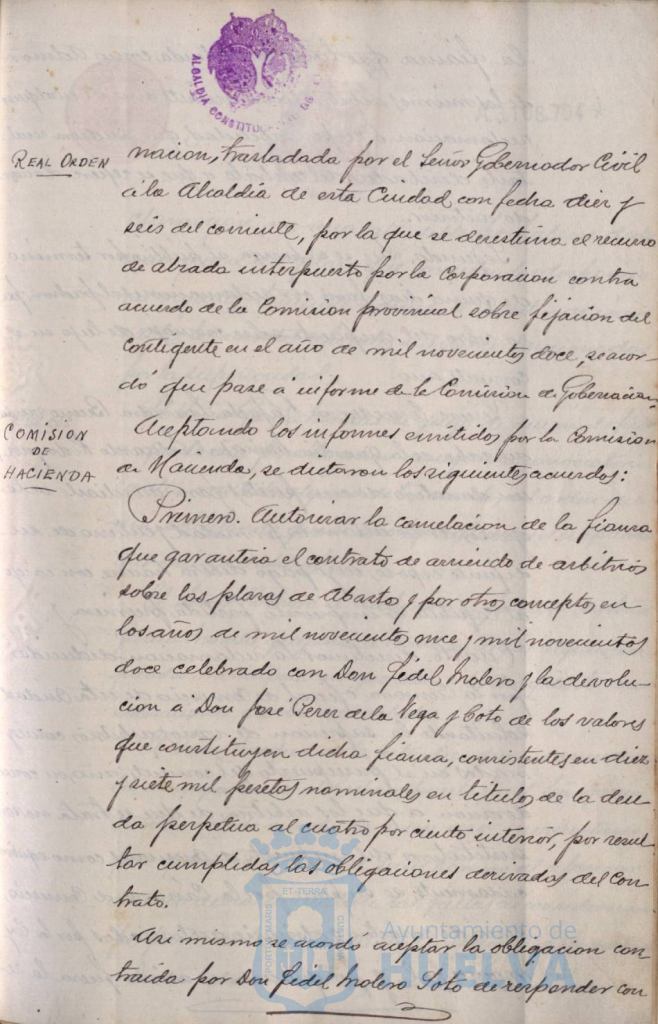 ALCALDÍA CONSTITU
REAL ORDEN
nacion, trasladada por el Señor Gobernador Civil
á la Alcaldía de esta Ciudad con fecha diez y
seis del corriente, por la que se desestima el recurso
de alzada interpuesto por la Corporacion contra
acuerdo de la Comision provincial sobre fijacion del
contigente en el año de mil novecientos doce, se acor-
dó que pase á informe de la Comision de Gobernacion.
COMISION
DE
HACIENDA
Aceptando los informes emitidos por la Comision
de Hacienda, se dictaron los siguientes acuerdos:
Primero. Autorizar la cancelacion de la fianza
que garantiza el contrato de arriendo de arbitrios
sobre las plazas de Abasto y por otros conceptos en
los años de mil novecientos once y mil novecientos
doce celebrado con Don Fidel Molero y la devolu-
cion á Don José Perez de la Vega y Coto de los valores
que constituyen dicha fianza, consistentes en diez
y siete mil pesetas nominales en titulos de la deu-
da perpetua al cuatro por ciento interior, por resul-
tar cumplidas las obligaciones derivadas del Con-
trato.
Asi mismo se acordó aceptar la obligacion con-
traida por Don Fidel Molero Soto de responder con
ET TERRÆ
PORTUS MARIS
Ayuntamiento de
HUELVA